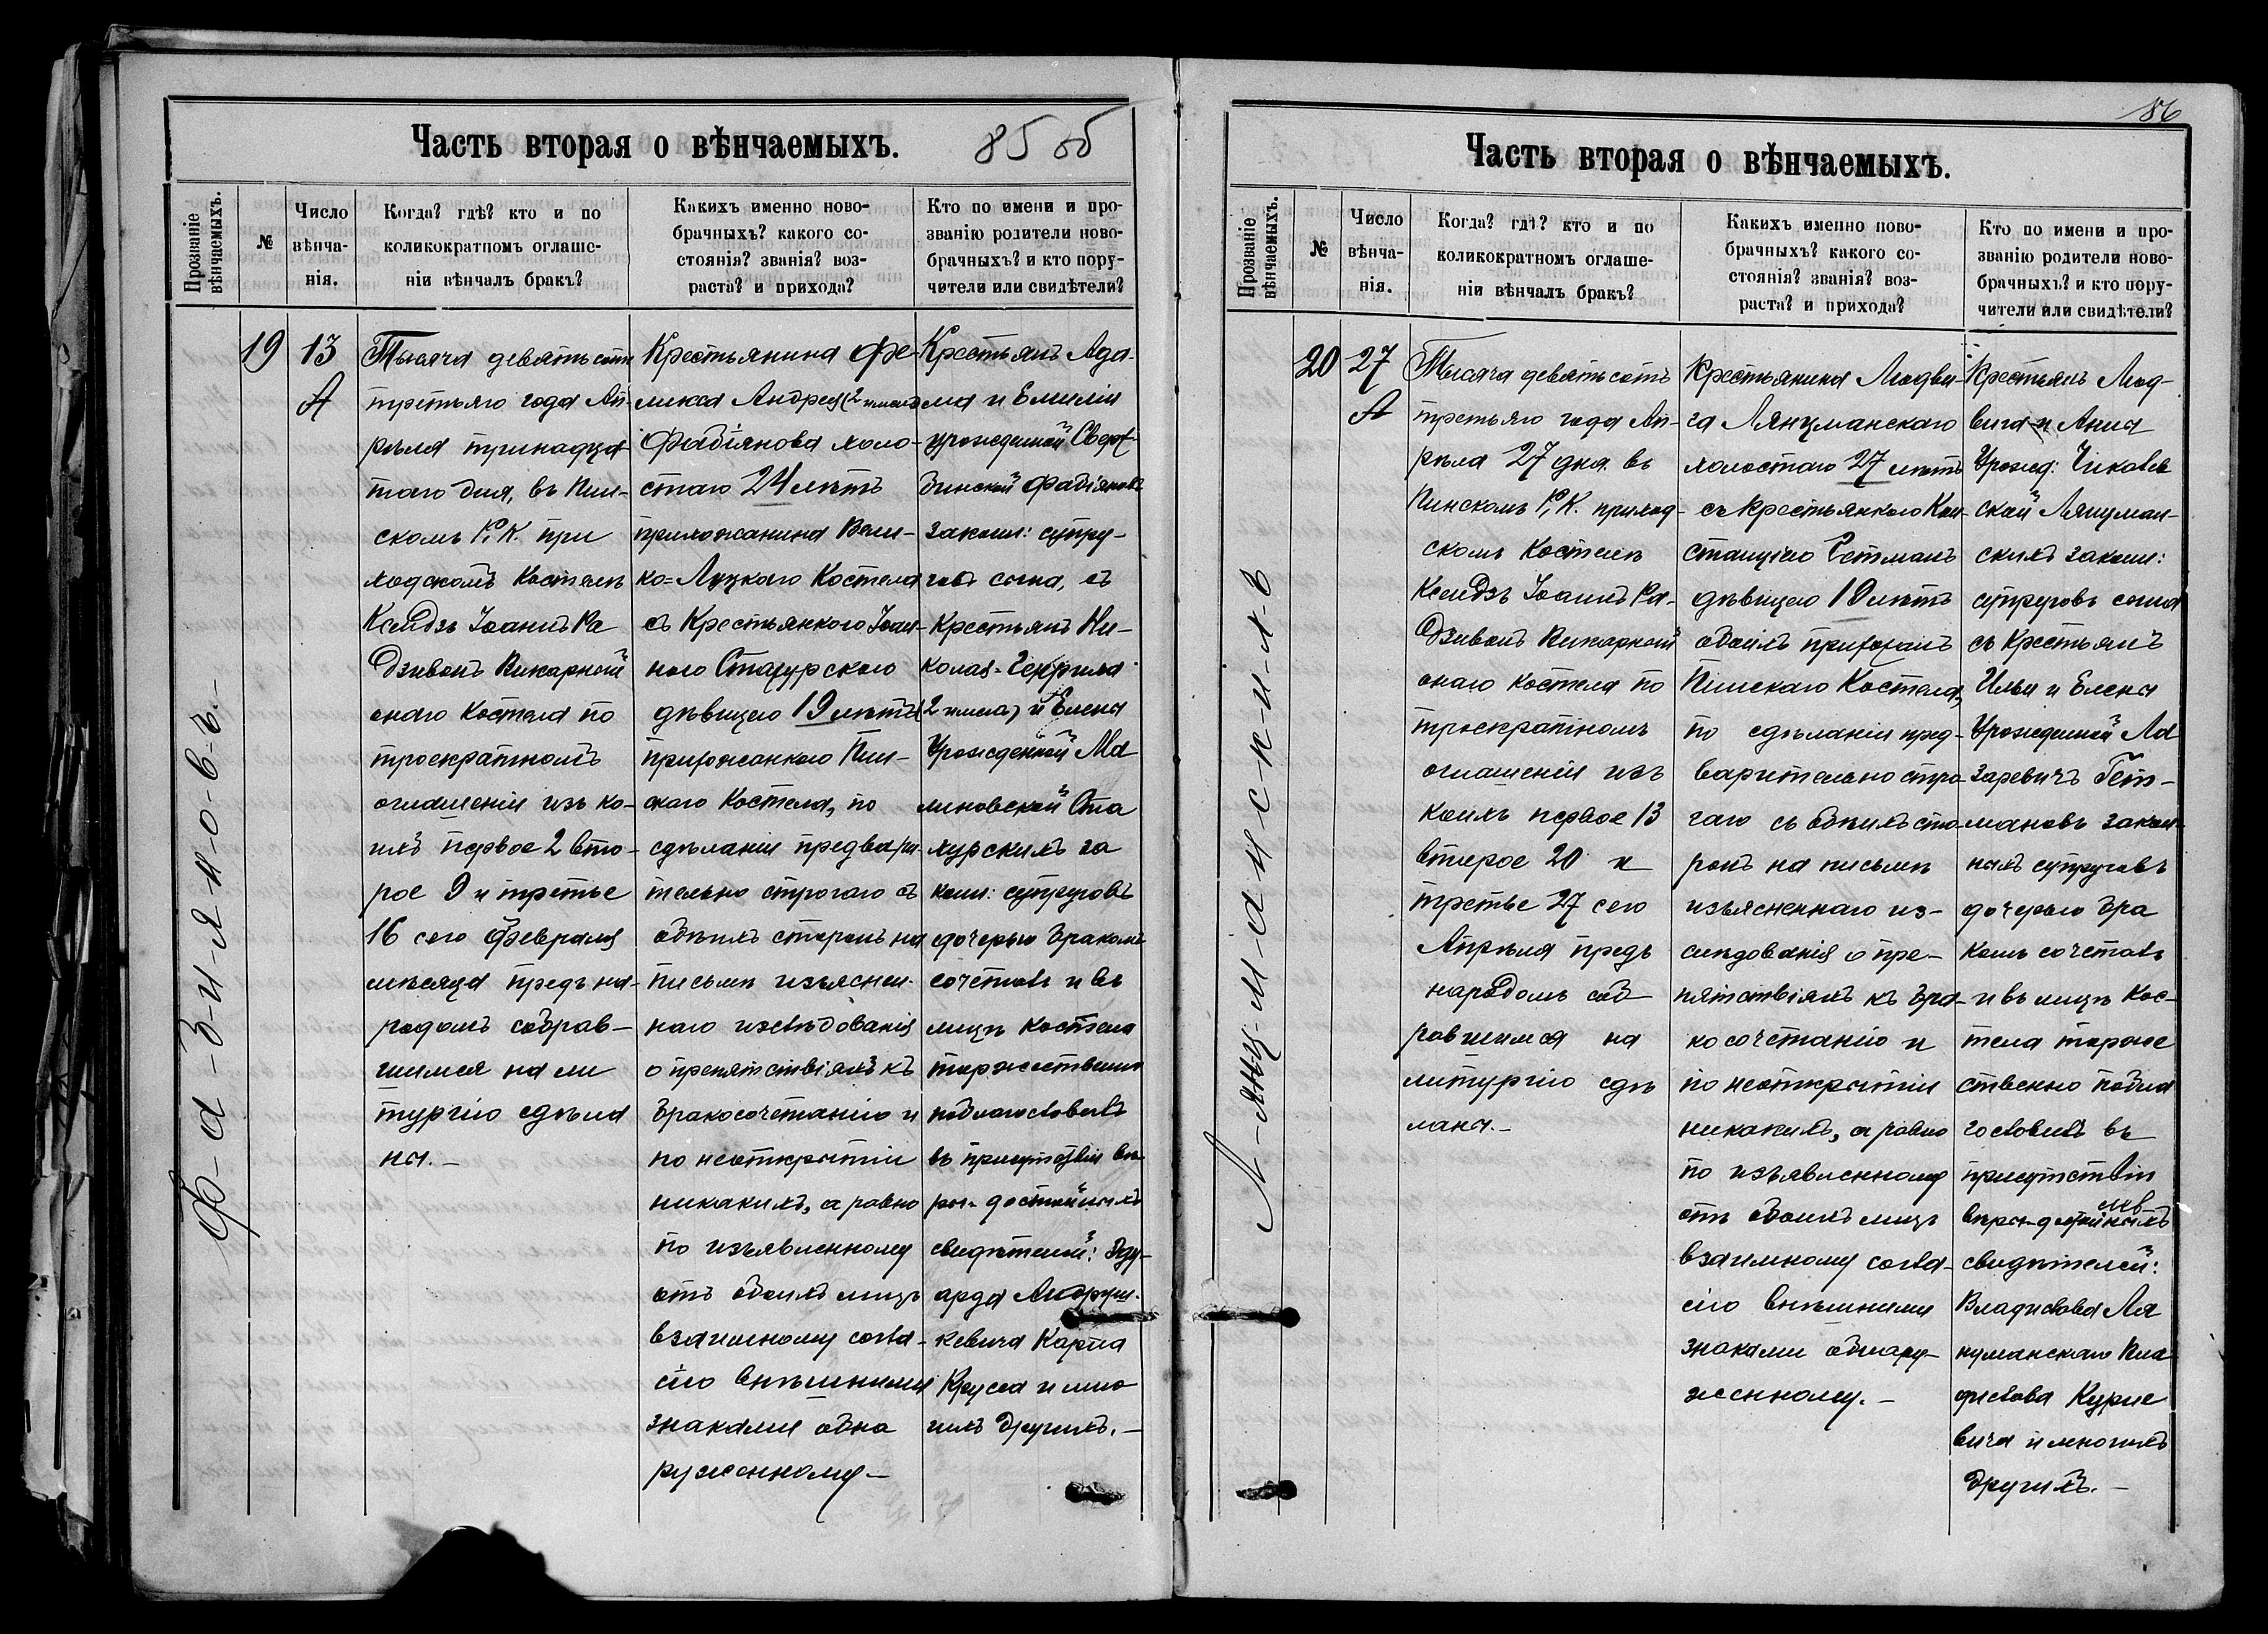 Часть вторая о вѣнчаемыхъ.
85 об
Прозваніе вѣнчаемыхъ.
№
Число вѣнча-
нія.
Когда? гдѣ? кто и по
коликократномъ оглаше-
ніи вѣнчалъ бракъ?
Какихъ именно ново-
брачныхъ? какого со-
стоянія? званія? воз-
раста? и прихода?
Кто по имени и про-
званію родители ново-
брачныхъ? и кто пору-
чители или свидѣтели?
Ф-а-б-и-я-н-о-в-ъ.-
19
13
А
Тысяча девятьсотъ
третьяго года Ап-
рѣля тринадца
таго дня, въ Пин-
скомъ Р. К. при
ходскомъ Костелѣ
Ксендзъ Іоаннъ Ра
дзивонъ Викарный
онаго Костела по
троекратномъ
оглашеніи изъ ко-
ихъ первое 2 вто-
рое 9 и третье
16 сего Февраля
мѣсяца предъ на-
родомъ собрав-
шимся на ли
тургію сдѣла
ны.-
Крестьянина Фе-
ликса Андрея (2 именъ)
Фабіянова холо-
стаго 24 лѣтъ
прихожанина Вели-
ко-Луцкаго Костела
съ Крестьянкою Іоан-
ною Стахурскою
дѣвицею 19 лѣтъ
прихожанкою Пин-
скаго Костела, по
сдѣланіи предвари-
тельно строгаго съ
обѣихъ сторонъ на
письмѣ изъяснен-
наго изслѣдованія
о препятствіяхъ къ
бракосочетанію и
по неоткрытіи
никакихъ, а равно
по изъявленному
отъ обоихъ лицъ
взаимному согла-
сію внѣшними
знаками обна
руженному-
Крестьянъ Ада-
ма и Емиліи
урожденной Сверж
бинской Фабіяновъ
закон: супру-
говъ сына, съ
Крестьянъ Ни-
колая-
2 имена) и Елены
Урожденной Ма
линовской Ста
хурскихъ за
кон: супруговъ
дочерью бракомъ
сочеталъ и въ
лицѣ Костела
торжественно
поблагословилъ
въ присутствіи вѣ-
ры-достойныхъ
свидѣтелей: Эду-
арда Андруш-
кевича Карла
Круса и мно
гихъ другихъ.-
86
Часть вторая о вѣнчаемыхъ.
Прозваніе вѣнчаемыхъ.
№
Число вѣнча-
нія.
Когда? гдѣ? кто и по
коликократномъ оглаше-
ніи вѣнчалъ бракъ?
Какихъ именно ново-
брачныхъ? какого со-
стоянія? званія? воз-
раста? и прихода?
Кто по имени и про-
званію родители ново-
брачныхъ? и кто пору-
чители или свидѣтели?
Л-янц-м-а-н-с-к-и-х-ъ
20
27
А
Тысяча девятьсотъ
третьяго года Ап-
рѣля 27 дня въ
Пинскомъ Р. К. приход-
скомъ Костелѣ
Ксендзъ Іоаннъ Ра-
дзивонъ Викарный
онаго Костела по
троекратномъ
оглашеніи изъ
коихъ первое 13
второе 20 и
третье 27 сего
Апрѣля предъ
народомъ соб
равшимся на
литургію сдѣ
ланы.-
Крестьянина Людви-
га Лянцманскаго
холостаго 27 лѣтъ
съ Крестьянкою Кон-
станціею Гетманъ
дѣвицею 19 лѣтъ
обоихъ прихожанъ
Пинскаго Костела,
по сдѣланіи пред-
варительно стро-
гаго съ обѣихъ сто-
ронъ на письмѣ
изъясненнаго из-
слѣдованія о пре-
пятствіяхъ къ бра-
косочетанію и
по неоткрытіи
никакихъ, а равно
по изъявленному
отъ обоихъ лицъ
взаимному согла-
сію внѣшними
знаками обнару-
женному.-
Крестьянъ Люд-
вига и Анны
Урожд:
ской Лянцман-
скихъ закон:
супруговъ сына
съ Крестьянъ
Ильи и Елены
Урожденной Ла
заревичъ Гет-
мановъ закон-
ныхъ супруговъ
дочерью бра
комъ сочеталъ
и въ лицѣ Кос-
тела торже
ственно побла
гословилъ въ
присутствіи
вѣры-достойныхъ
свидѣтелей:
Владислава Ля
нцманскаго Вла
дислава Курие
вича и многихъ
другихъ.-